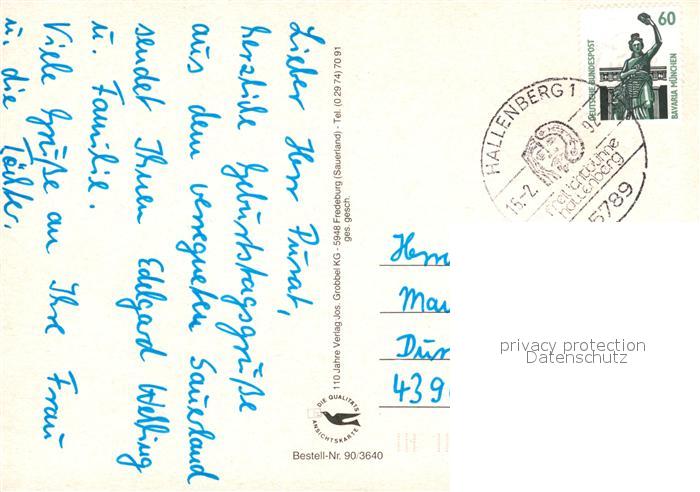 Lieber Herr Pursat,
herzliche Geburtstagsgrüße
aus dem verregneten Sauerland
sendet Ihnen Edelgard Welling
u. Familie.
Viele Grüße an Ihre Frau
u. die Töchter.
110 Jahre Verlag Jos. Grobbel KG - 5948 Fredeburg (Sauerland) - Tel. (0 29 74) 70 91
ges. gesch.
DIE QUALITÄTS
ANSICHTSKARTE
Bestell-Nr. 90/3640
60
DEUTSCHE BUNDESPOST
BAVARIA MÜNCHEN
HALLENBERG 1
16.-2. 92
Freilichtbühne
Hallenberg
5789
Herr
Mau
Dür
439
privacy protection
Datenschutz